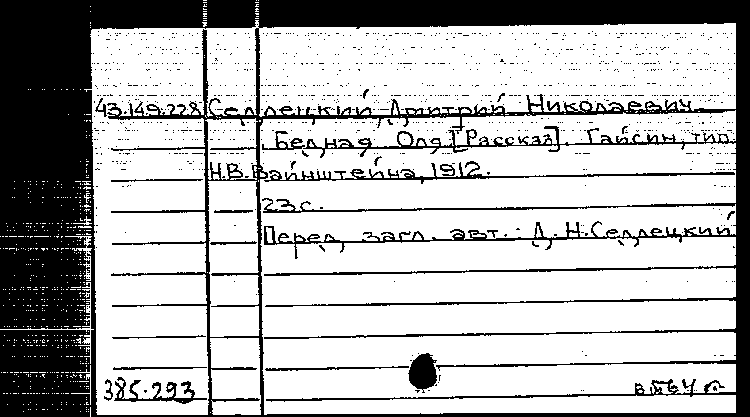 43.149.228 Седлецкий, Дмитрий Николаевич.
Бедная Оля [Рассказ]. Гайсин, тип.
Н.В.Вайнштейна, 1912.
23с.
Перед загл. авт.: Д.Н.Седлецкий
385.293